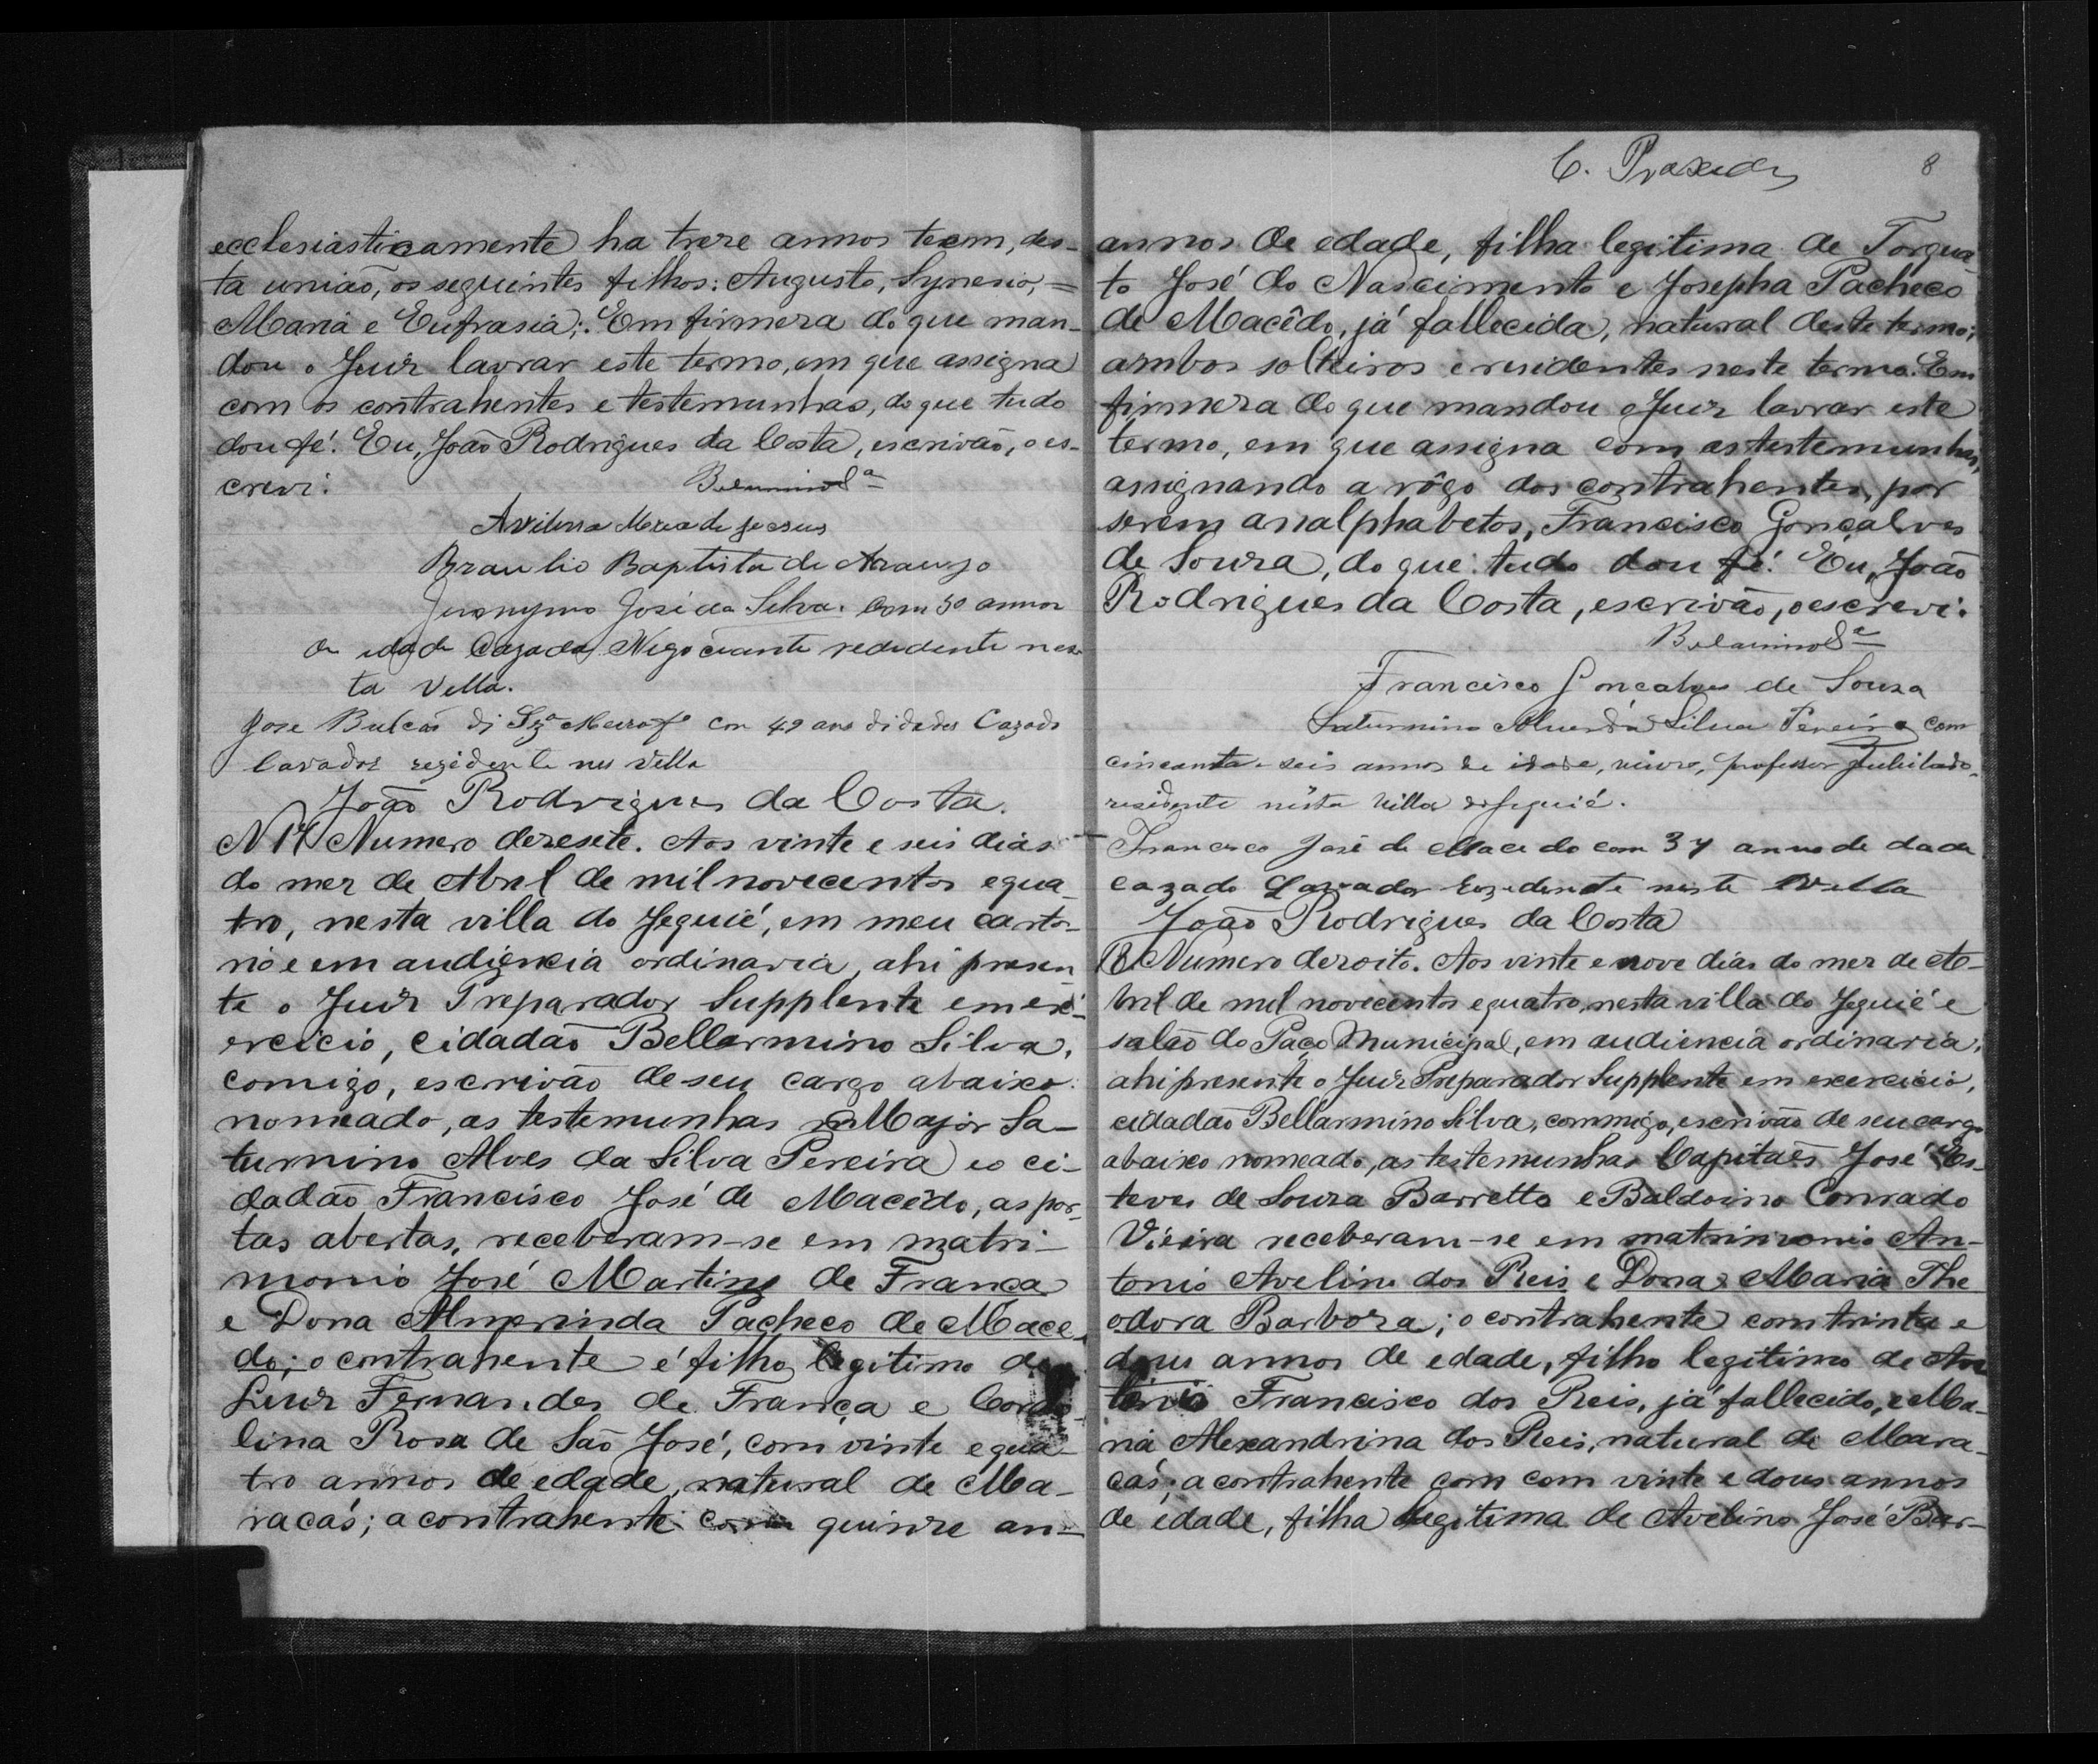 ecclesiasticamente ha treze annos teem, des-
ta união, os seguintes filhos: Augusto, Synesio, =
Maria e Eufrasia; Em firmeza do que man-
dou o Juiz lavrar este termo, em que assigna
com os contrahentes e testemunhas, do que tudo
dou fé. Eu, João Rodrigues da Costa, escrivão, o es-
crevi.
Belarmino Sª
Maria de Jesus
Braulio Baptista de Araujo
Jeronymo José da Silva. Com 50 annos
de idade Cazado Negociante redidente nes
ta Villa.
Jose Bulcão di con 49 ano didades Cazado
lavador rezidente nes villa
João Rodrigues da Costa.
N 17 Numero dezesete. Aos vinte e seis dias
do mez de Abril de mil novecentos e qua-
tro, nesta villa do Jequié, em meu carto-
rio e em audiencia ordinaria, ahi presen
te o Juiz Preparador Supplente em ex-
ercicio, cidadão Bellarmino Silva,
comigo, escrivão de seu cargo abaixo
nomeado, as testemunhas Major Sa-
turnino Alves da Silva Pereira e o ci-
dadão Francisco José de Macêdo, as por-
tas abertas, receberam-se em matri-
monio José Martins de França
e Dona Almerinda Pacheco de Mace-
do; o contrahente é filho legitimo de
Luiz Fernandes de França e Cordo
lina Rosa de São José, com vinte e qua-
tro annos de edade, natural de Ma-
racás; a contrahente com quinze an-
C. Praxedes 8
annos de edade, filha legitima de Torqua-
to José do Nascimento e Josepha Pacheco
de Macêdo, já fallecida, natural deste termo;
ambos solteiros e residentes neste termo. Em
firmeza do que mandou o Juiz lavrar este
termo, em que assigna com as testemunhas,
assignando a rôgo dos contrahentes, por
serem analphabetos, Francisco Gonçalves
de Souza, do que tudo dou fé. Eu, João
Rodrigues da Costa, escrivão, o escrevi.
Belarmino Sª
Francisco Goncalves de Souza
Saturnino Alves da Silva Pereira com
cincoenta e seis annos de idade, viuvo, professor jubilado,
residente nésta Villa de Jequié.
Francisco José de Macedo com 37 annos de dade
cazado Lavrador Rezedente neste Villa
João Rodrigues da Costa
18 Numero dezoito. Aos vinte e nove dias do mez de A-
bril de mil novecentos e quatro, nesta villa do Jequié e
salão do Paço Municipal, em audiencia ordinaria,
ahi presente o Juiz Preparador Supplente em exercicio,
cidadão Bellarmino Silva, commigo, escrivão de seu cargo
abaixo nomeado, as testemunhas Capitães José Es-
teves de Souza Barretto e Baldoino Conrado
Vieira receberam-se em matrimonio An-
tonio Avelino dos Reis e Dona Maria The
odora Barboza; o contrahente com trinta e
dous annos de edade, filho legitimo de An
tonio Francisco dos Reis, já fallecido, e Ma-
ria Alexandrina dos Reis, natural de Mara-
cás; a contrahente com com vinte e dous annos
de edade, filha legitima de Avelino José Bar-